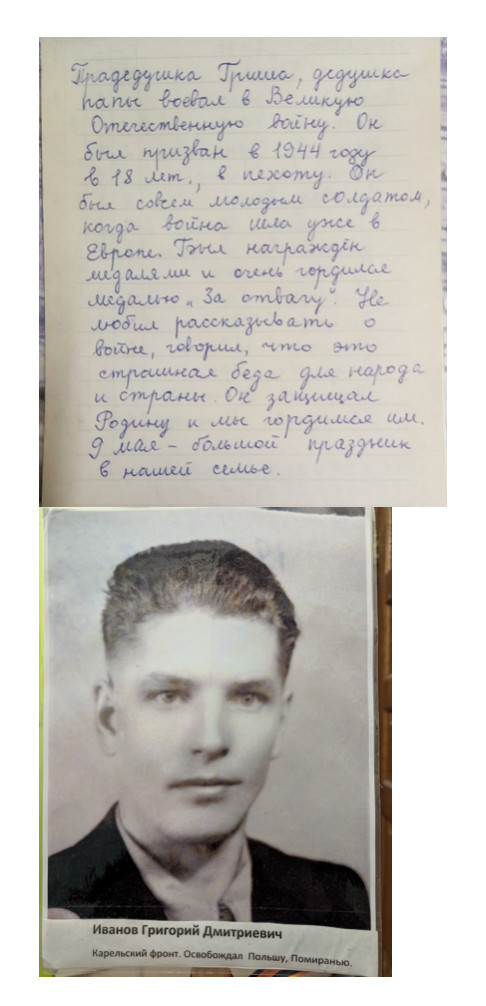 Прадедушка Гриша, дедушка
папы воевал в Великую
Отечественную войну. Он
был призван в 1944 году
в 18 лет., в пехоту. Он
был совсем молодым солдатом,
когда война шла уже в
Европе. Был награждён
медалями и очень гордился
медалью „За отвагу". Не
любил рассказывать о
войне, говорил, что это
страшная беда для народа
и страны. Он защищал
Родину и мы гордимся им.
9 мая – большой праздник
в нашей семье.
Иванов Григорий Дмитриевич
Карельский фронт. Освобождал Польшу, Помиранью.